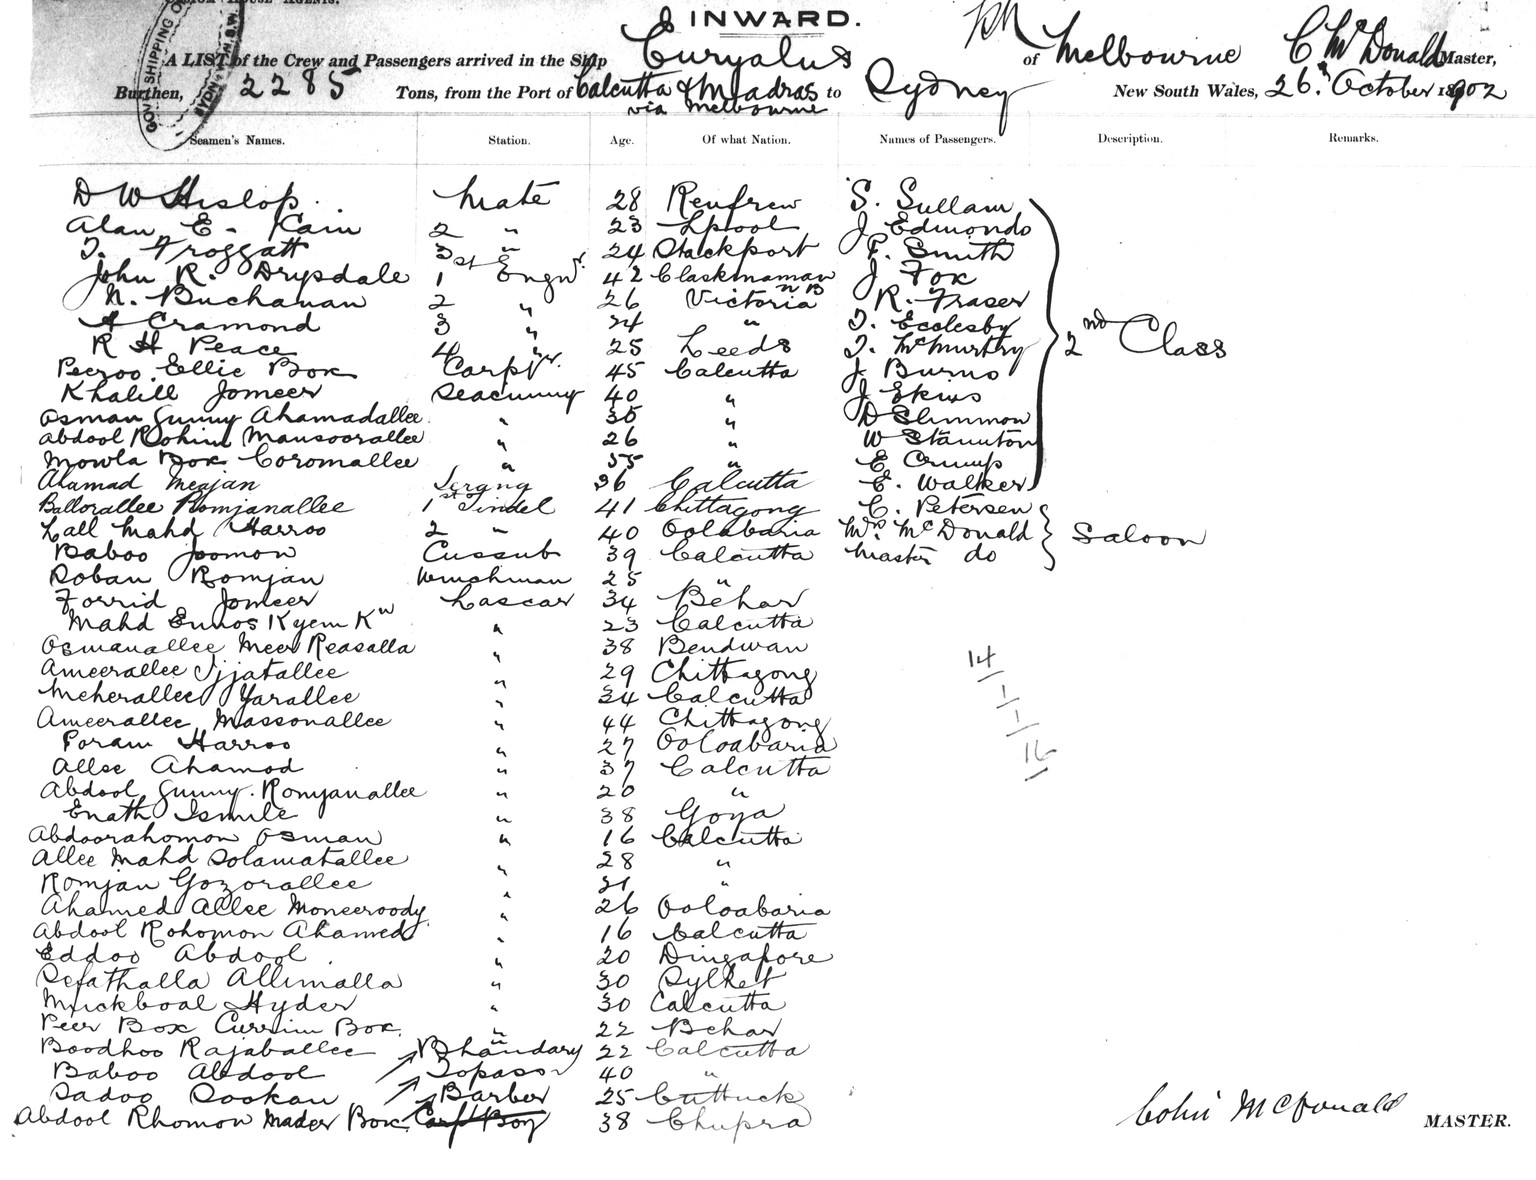 CUSTOM HOUSE AGENTS.
INWARD.
A LIST of the Crew and Passengers arrived in the Ship Euryalus of Melbourne C McDonald Master,
Burthen, 2285 Tons, from the Port of Calcutta & Madras via Melbourne to Sydney New South Wales, 26th October 1902
Seamen's Names. Station. Age. Of what Nation. Names of Passengers. Description. Remarks.
D W Hislop Mate 28 Renfrew S. Sullam
Alan E. Kain 2 " 23 Lpool J Edmondo
T. Froggatt 3 " 24 Stockport F. Smith
John R. Drysdale 1st Engnr. 42 Clackmannan NB J Fox
N. Buchanan 2 " 26 Victoria R. Fraser
A Cramond 3 " 24 " T. Ecclesby
R H Peace 4 " 25 Leeds T. McMurtry 2nd Class
Peeroo Ellie Box Carptr. 45 Calcutta J. Burns
Khalill Jomeer Seacunny 40 " J Ekins
Osman Gunny Ahamadallee " 30 " D Slimmon
Abdool Rohim Mansoorallee " 26 " W Staunton
Mowla Box Coromallee " 55 " E Crump
Ahamad Meajan Serang 36 Calcutta E. Walker
Ballorallee Romjanallee 1st Tindel 41 Chittagong C. Petersen
Lall Mahd Harroo 2 " 40 Oolabaria Mrs McDonald Saloon
Baboo Joomon Cussub 39 Calcutta Master do
Soban Romjan Winchman 25 "
Forrid Jomeer Lascar 34 Behar
Mahd Ennos Kyem Kn " 23 Calcutta
Osmanallee Meer Reasalla " 38 Bendwan
Ameerallee Ijjatallee " 29 Chittagong
Meherallee Yarallee " 34 Calcutta
Ameerallee Massonallee " 44 Chittagong
Poram Harroo " 27 Ooloabaria
Allee Ahamod " 37 Calcutta
Abdool Gunny Romjanallee " 20 "
Enath Ismile " 38 Goya
Abdoorahomon Osman " 16 Calcutta
Allee Mahd Solamatallee " 28 "
Romjan Gozorallee " 21 "
Ahamed Allee Moneeroody " 26 Ooloabaria
Abdool Rohomon Ahamed " 16 Calcutta
Eddoo Abdool " 20 Singapore
Sefathalla Allimalla " 30 Sylhet
Muckbool Hyder " 30 Calcutta
Peer Box Currim Box " 22 Behar
Boodhoo Rajaballee Bhandary 22 Calcutta
Baboo Abdool Topass 40 "
Sadoo Sookan Barber 25 Cuttuck
Abdool Rhomon Mader Box Carp Boy 38 Chupra
14
1
1
16
Colin McDonald MASTER.